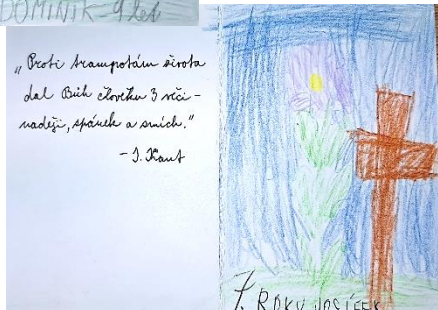 DOMINIK 9 let
„Proti trampotám života
dal Bůh člověku 3 věci -
naději, spánek a smích."
- I. Kant
7. ROKU JOSÍFEK